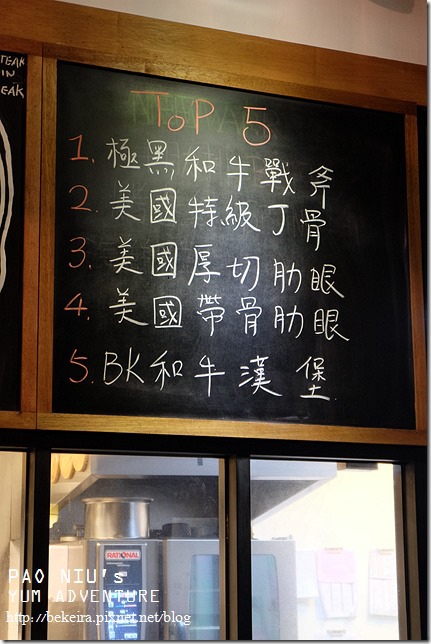 TEAK
IN
EAK
TOP 5
1. 極黑和牛戰斧
2. 美國特級丁骨
3. 美國厚切肋眼
4. 美國帶骨肋眼
5. BK和牛漢堡
RATIONAL
PAO NIU's
YUM ADVENTURE
http://bekeira.pixnet.net/blog